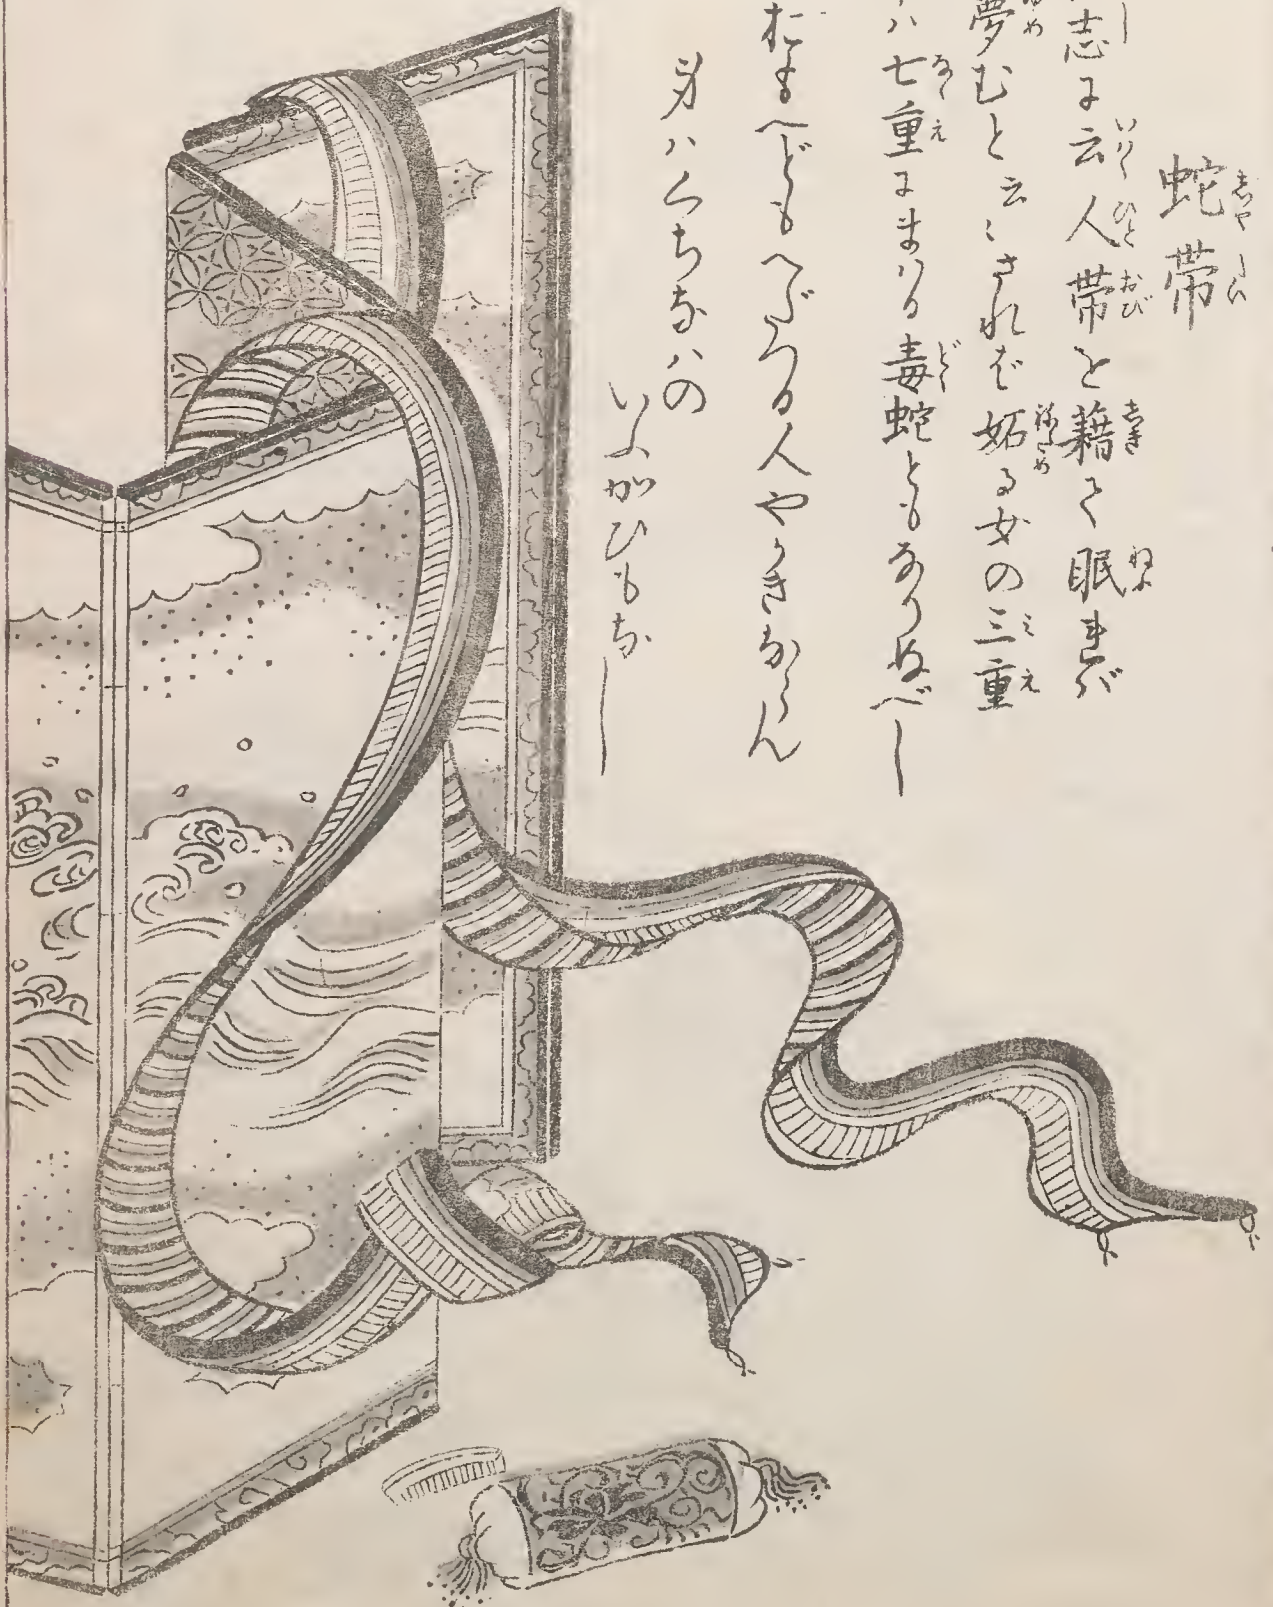 蛇帯
志に云人帯を藉て眠れバ
夢むと云〻されば妬る女の三重
ハ七重にまハる毒蛇ともなりぬべし
おもへどもへだつる人やかきならん
身ハくちなハの
いふがひもなし